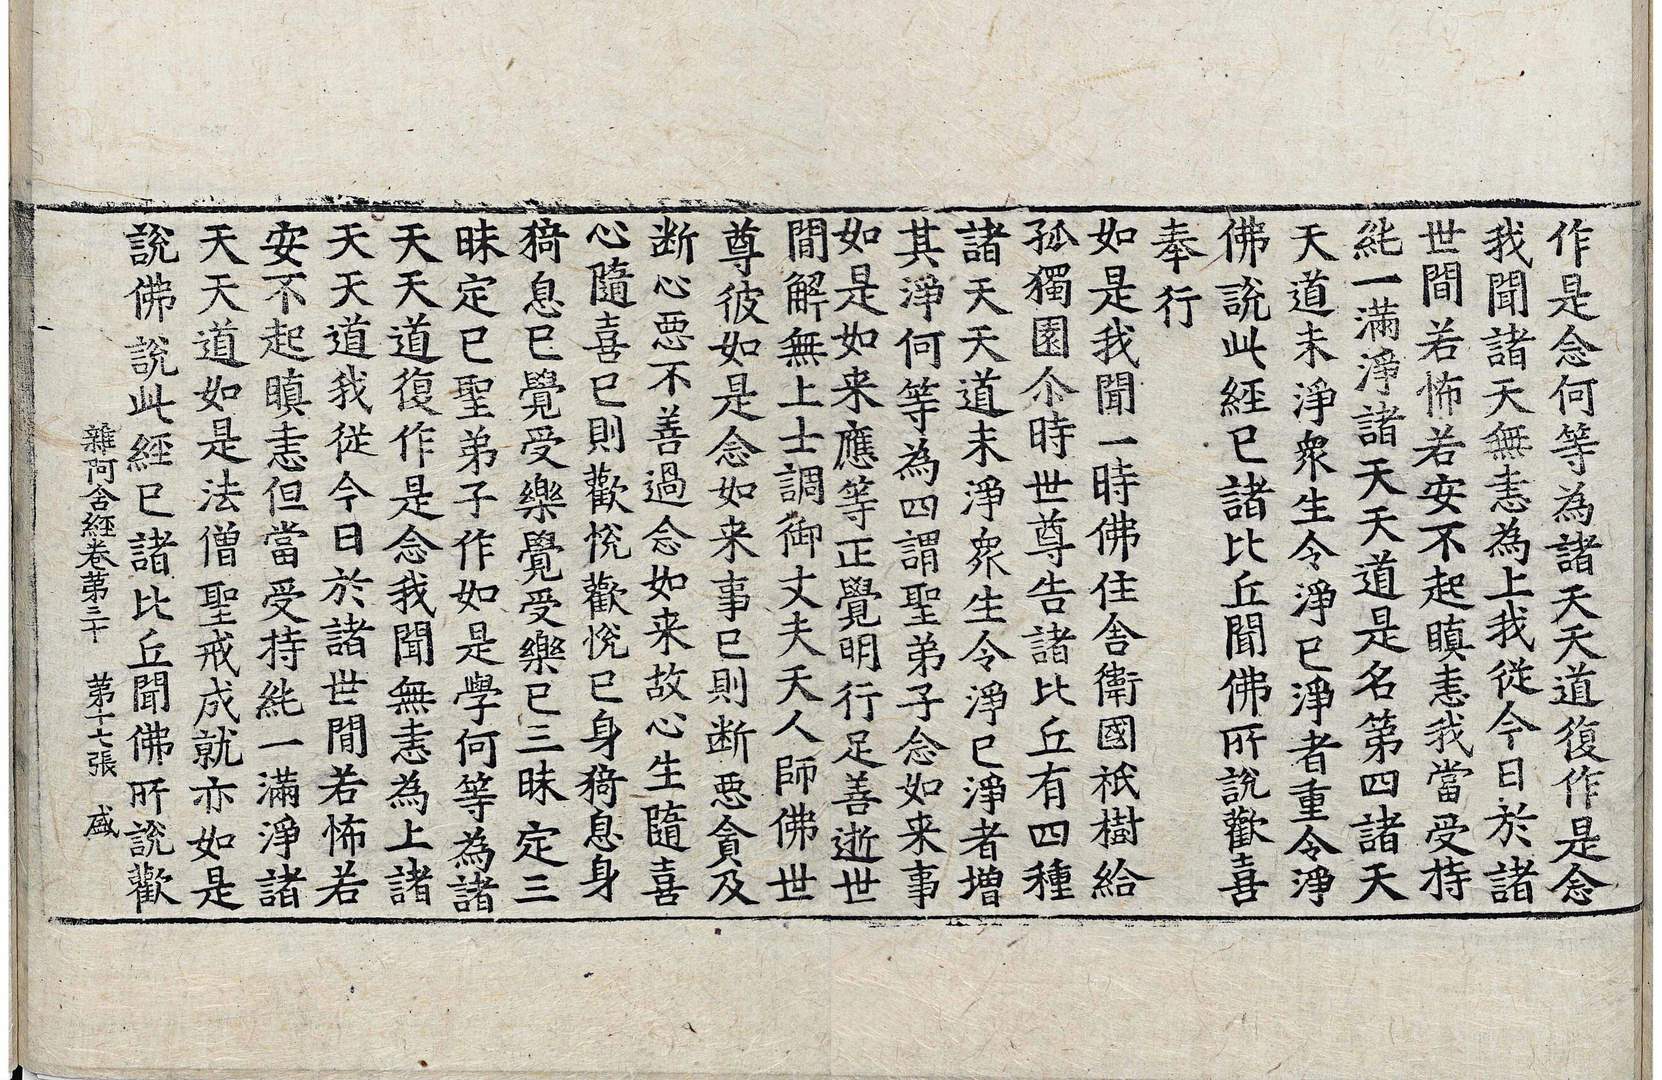 作是念何等為諸天天道復作是念
我聞諸天無恚為上我從今日於諸
世間若怖若安不起瞋恚我當受持
純一滿淨諸天天道是名第四諸天
天道未淨衆生令淨已淨者重令淨
佛說此經已諸比丘聞佛所說歡喜
奉行
如是我聞一時佛住舍衛國祇樹給
孤獨園尒時世尊告諸比丘有四種
諸天天道未淨衆生令淨已淨者増
其淨何等為四謂聖弟子念如来事
如是如来應等正覺明行足善逝世
間解無上士調御丈夫天人師佛世
尊彼如是念如来事已則断惡貪及
断心惡不善過念如来故心生隨喜
心隨喜已則歡悅歡悅已身猗息身
猗息已覺受樂覺受樂已三昧定三
昧定已聖弟子作如是學何等為諸
天天道復作是念我聞無恚為上諸
天天道我從今日於諸世間若怖若
安不起瞋恚但當受持純一滿淨諸
天天道如是法僧聖戒成就亦如是
說佛說此經已諸比丘聞佛所說歡
雜阿含經卷第三十 第十七張 盛